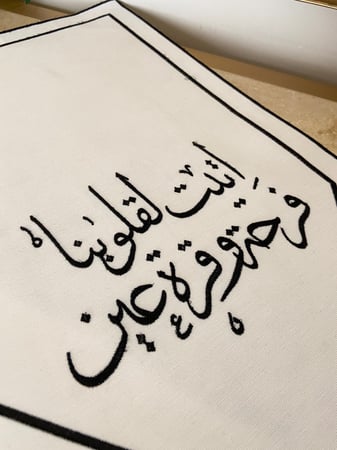 اتيت لقلوبنا
فرحة وقرة عين